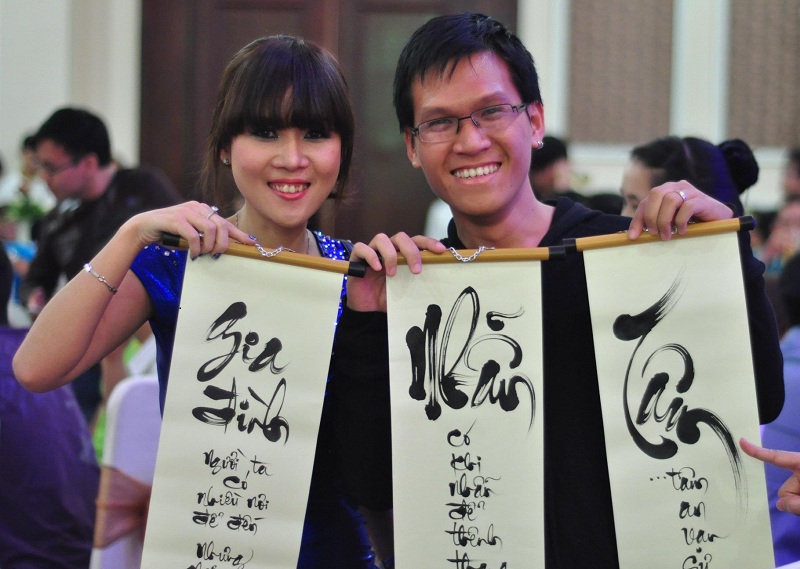 Gia
đình
người ta
có
nhiều nơi
để đến
nhưng
Nhẫn
có
khi
nhẫn
để
thênh
thang
Tâm
...tâm
an
vạn
sự